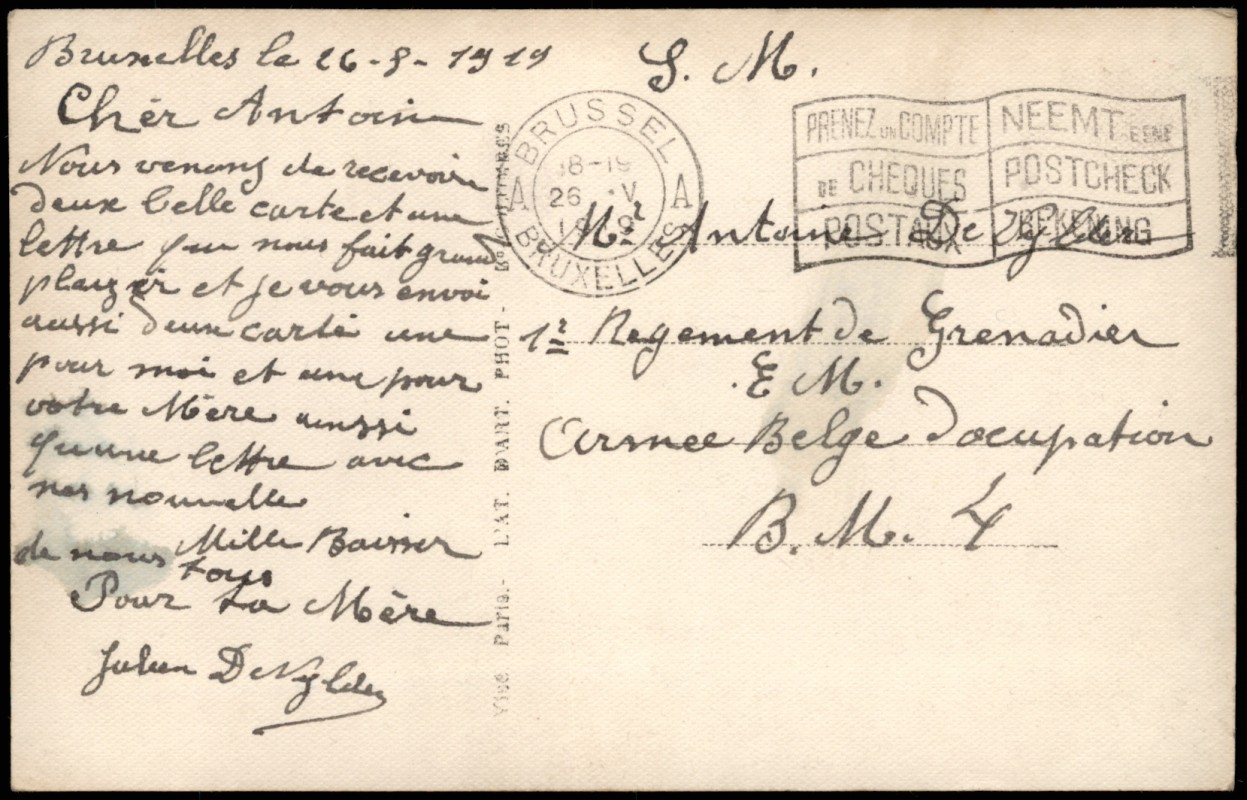 Bruxelles le 26-5-1919
Chèr Antoin
Nous venons de recevoire
deux belle carte et une
lettre qui nous fait grand
plaizir et je vous envoi
aussi deux carte une
pour moi et une pour
votre Mère ainssi
qu'une lettre avec
nes nouvelle
Mille Baisser
de nous tous
Pour ta Mère
Julien De Nylder
PHOT. L'AT. D'ART. PARIS.
S. M.
BRUSSEL
A A
26 V
BRUXELLES
PRENEZ UN COMPTE
DE CHEQUES
POSTAUX
NEEMT EENE
POSTCHECK
REKENING
Mr Antoine De Nylder
1r Regement de Grenadier
E M.
Armee Belge d'ocupation
B. M. 4